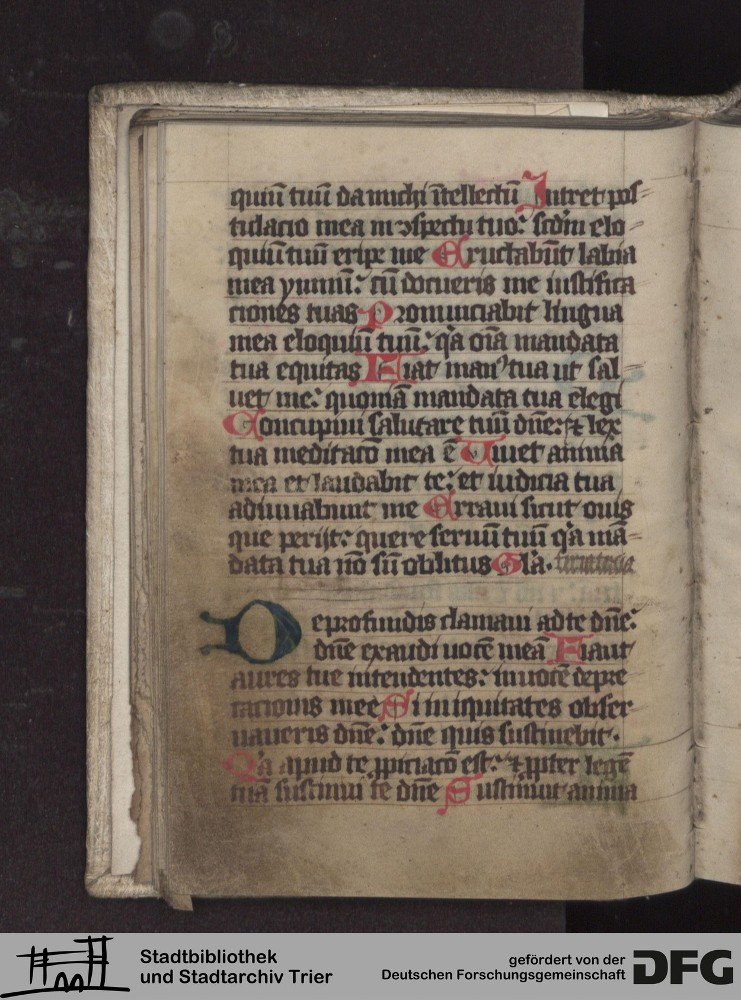 quiū tuū da michi ītellectū Intret pos⸗
tulacio mea in ɔspectu tuo: scdm elo⸗
quiū tuū eripe me Eructabūt labia
mea ymnū: cū docueris me iustifica
ciones tuas Pronunciabit lingua
mea eloquiū tuū: qa oīa mandata
tua equitas Fiat manꝰ tua ut sal⸗
uet me: quoniā mandata tua elegi
Concupiui salutare tuū dne: ⁊ lex
tua meditacō mea ē Viuet anima
mea et laudabit te: et iudicia tua
adiuuabunt me Erraui sicut ouis
que perijt: quere seruū tuū qa mā⸗
data tua nō sū oblitus Gla.
De profundis clamaui ad te dne:
dne exaudi uocē meā Fiant
aures tue intendentes: in uocē depre
cacionis mee Si iniquitates obser
uaueris dne: dne quis sustinebit.
Qa apud te ꝓpiciacō est: ⁊ ꝓpter legē
tuā sustinui te dne Sustinuit anima
Stadtbibliothek
und Stadtarchiv Trier
gefördert von der
Deutschen Forschungsgemeinschaft
DFG